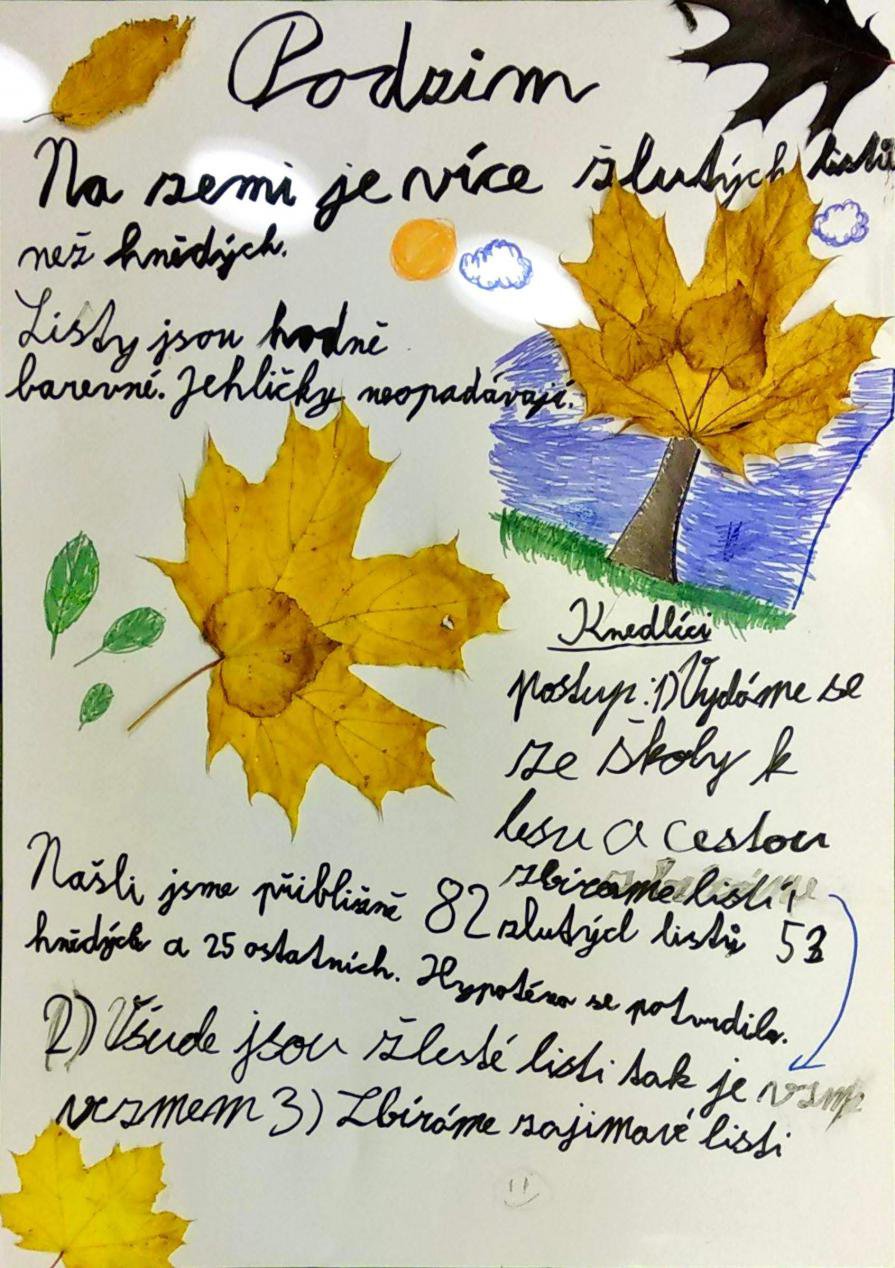 Podzim
Na zemi je více žlutých listů
než hnědých.
Listy jsou hodně
barevné. Jehličky neopadávají.
Knedlíci
postup: 1) Vydáme se
ze školy k
lesu a cestou
zbíráme listí,
Našli jsme přibližně 82 žlutých listů 53
hnědých a 25 ostatních. Hypotéza se potvrdila.
2) Všude jsou žluté listi tak je
vezmem 3) Zbíráme zajimavé listi